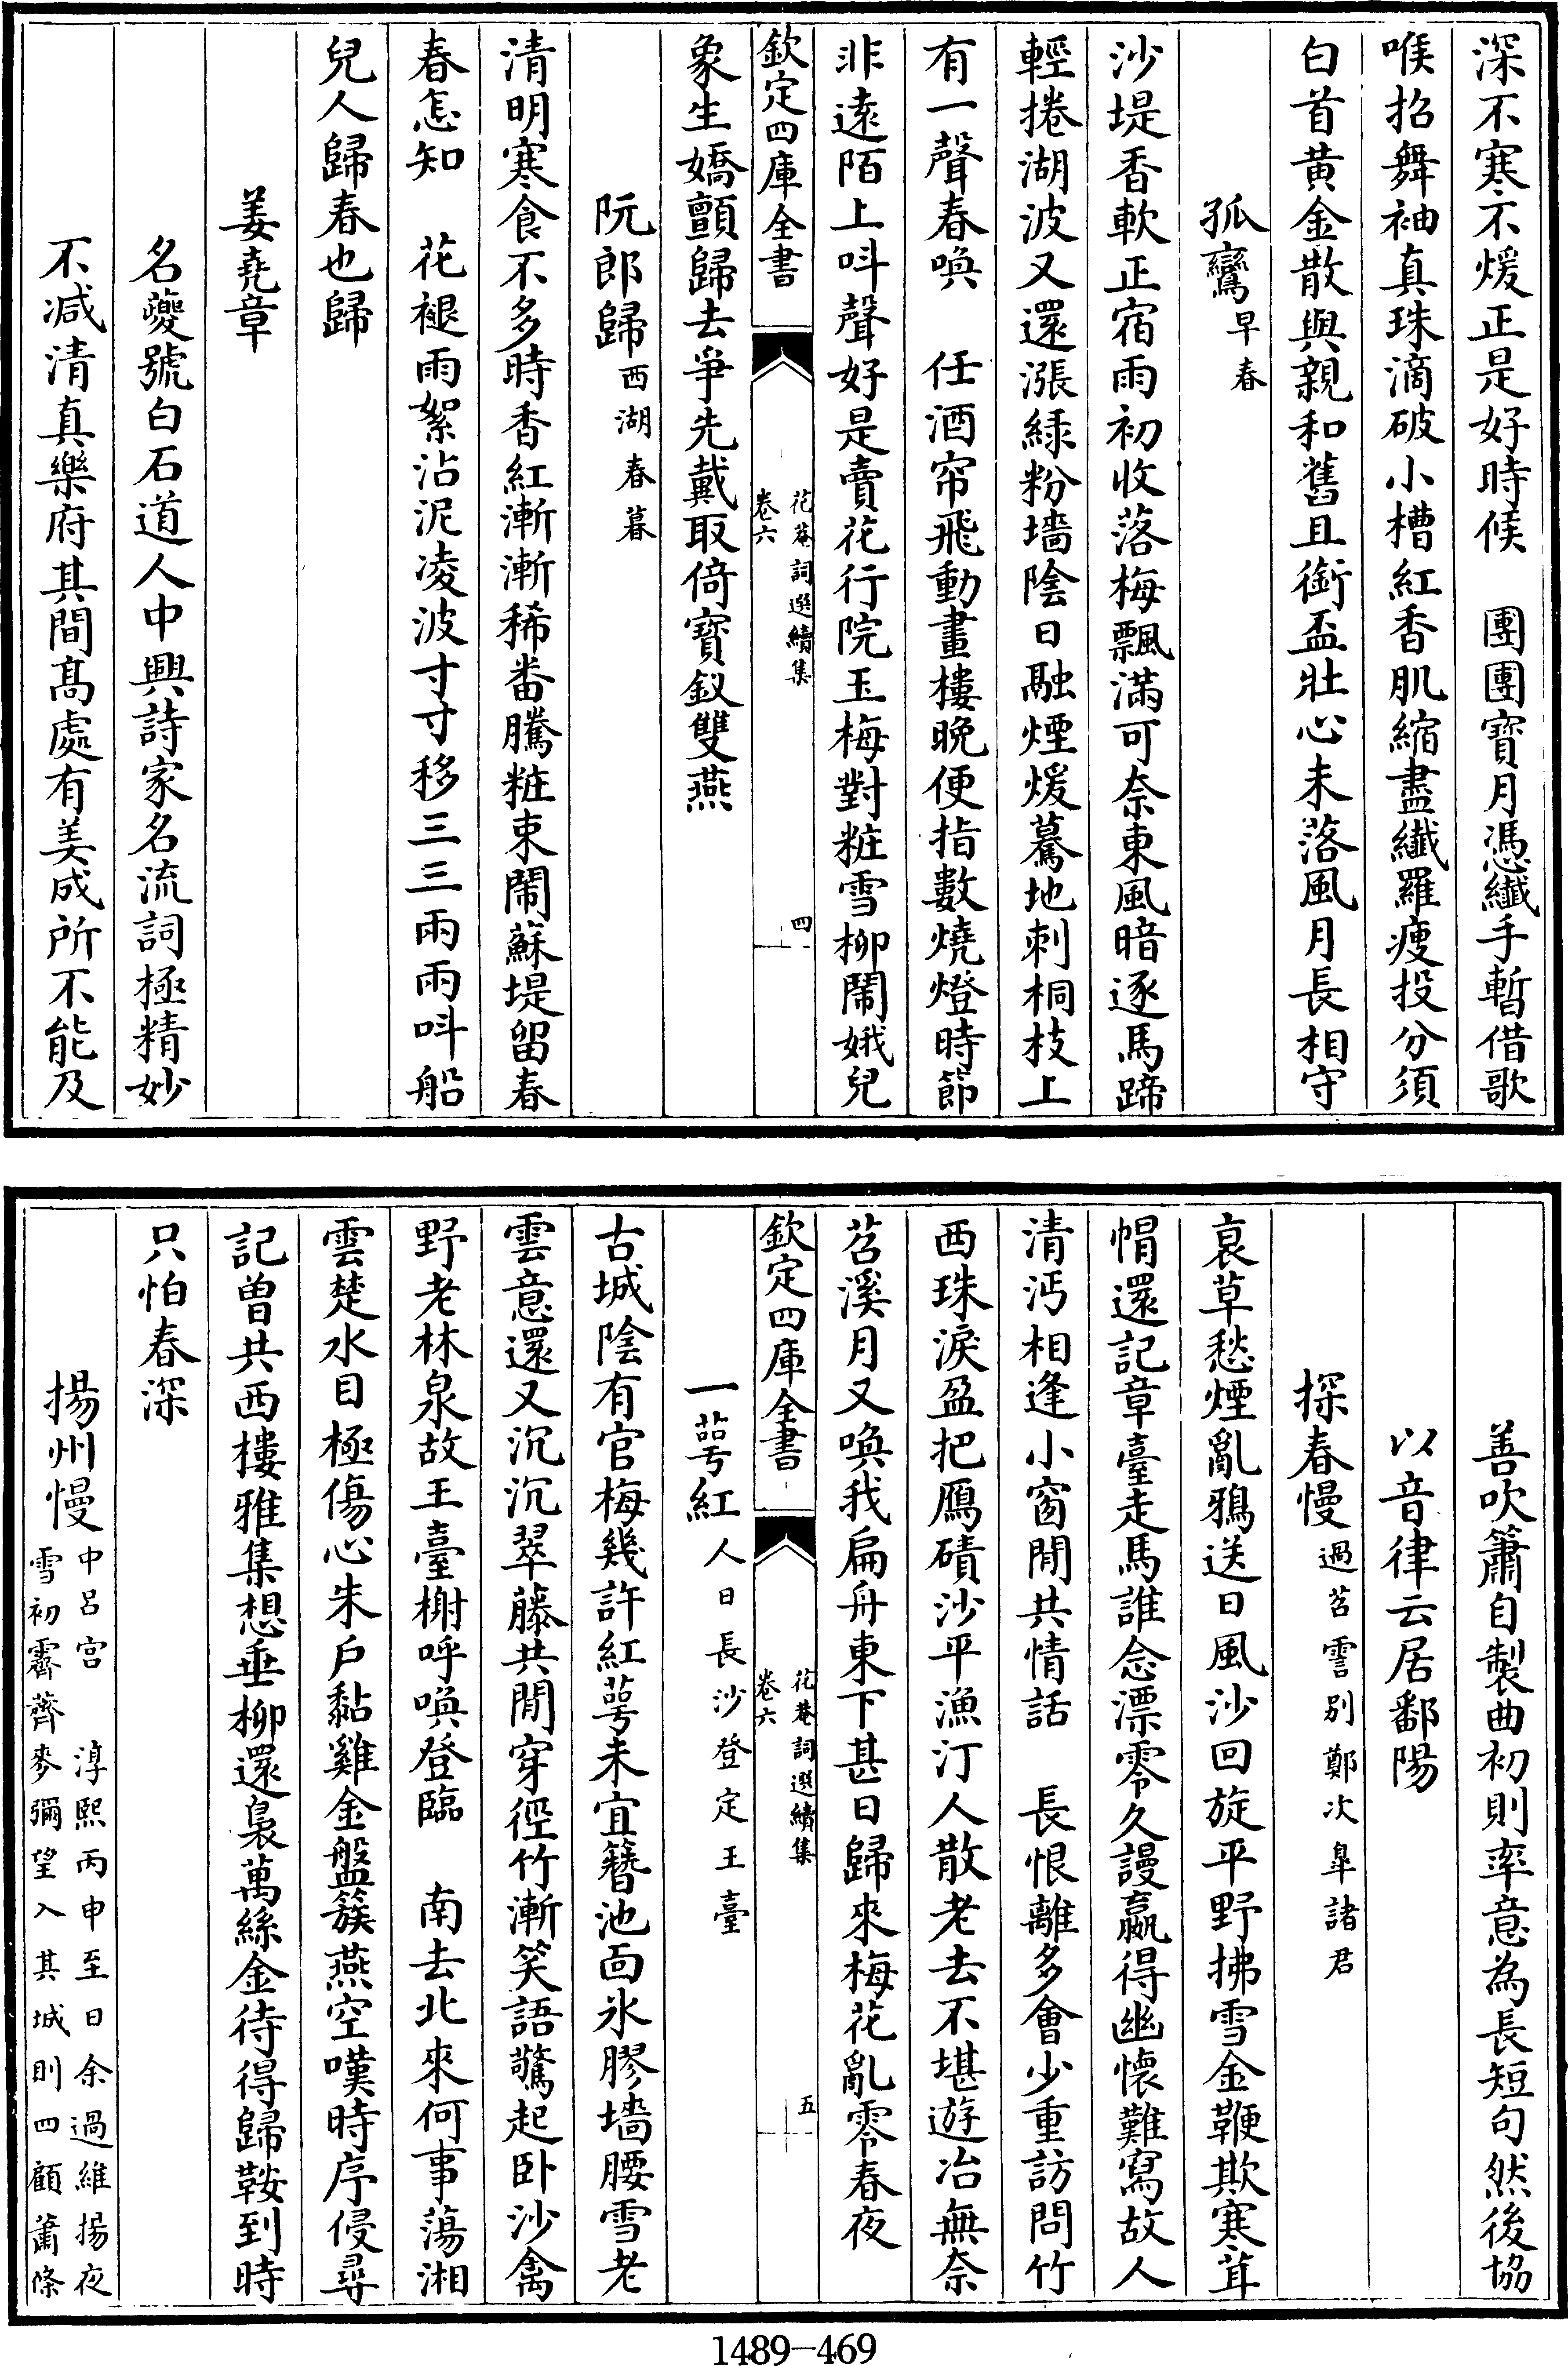 深不寒不煖正是好時候　團團寶月憑纖手暫借歌
喉招舞袖真珠滴破小槽紅香肌縮盡纖羅瘦投分須
白首黃金散與親和舊且銜盃壯心未落風月長相守
孤鸞早春
沙堤香軟正宿雨初收落梅飄滿可奈東風暗逐馬蹄
輕捲湖波又還漲綠粉墻陰日融煙煖驀地刺桐枝上
有一聲春喚　任酒帘飛動畫樓晚便指數燒燈時節
非遠陌上呌聲好是賣花行院玉梅對粧雪柳鬧娥兒
欽定四庫全書
花菴詞選續集
卷六
四
象生嬌顫歸去爭先戴取倚寶釵雙燕
阮郎歸西湖春暮
清明寒食不多時香紅漸漸稀畨騰粧束鬧蘇堤留春
春怎知　花褪雨絮沾泥凌波寸寸移三三兩兩呌船
兒人歸春也歸
姜堯章
名夔號白石道人中興詩家名流詞極精妙
不減清真樂府其間髙處有美成所不能及
善吹簫自製曲初則率意為長短句然後協
以音律云居鄱陽
探春慢過苕霅别鄭次臯諸君
衰草愁煙亂鴉送日風沙回旋平野拂雪金鞭欺寒茸
帽還記章臺走馬誰念漂零久謾嬴得幽懷難寫故人
清沔相逢小窗閒共情話　長恨離多會少重訪問竹
西珠淚盈把鴈磧沙平漁汀人散老去不堪遊冶無奈
苕溪月又喚我扁舟東下甚日歸來梅花亂零春夜
欽定四庫全書
花菴詞選續集
卷六
五
一萼紅人日長沙登定王臺
古城陰有官梅幾許紅萼未宜簪池面氷膠墻腰雪老
雲意還又沉沉翠藤共閒穿徑竹漸笑語驚起卧沙禽
野老林泉故王臺榭呼喚登臨　南去北來何事蕩湘
雲楚水目極傷心朱户黏雞金盤簇燕空嘆時序侵尋
記曽共西樓雅集想垂柳還裊萬絲金待得歸鞍到時
只怕春深
揚州慢中呂宫　淳熙丙申至日余過維揚夜
雪初霽薺麥彌望入其城則四顧蕭條
1489-469